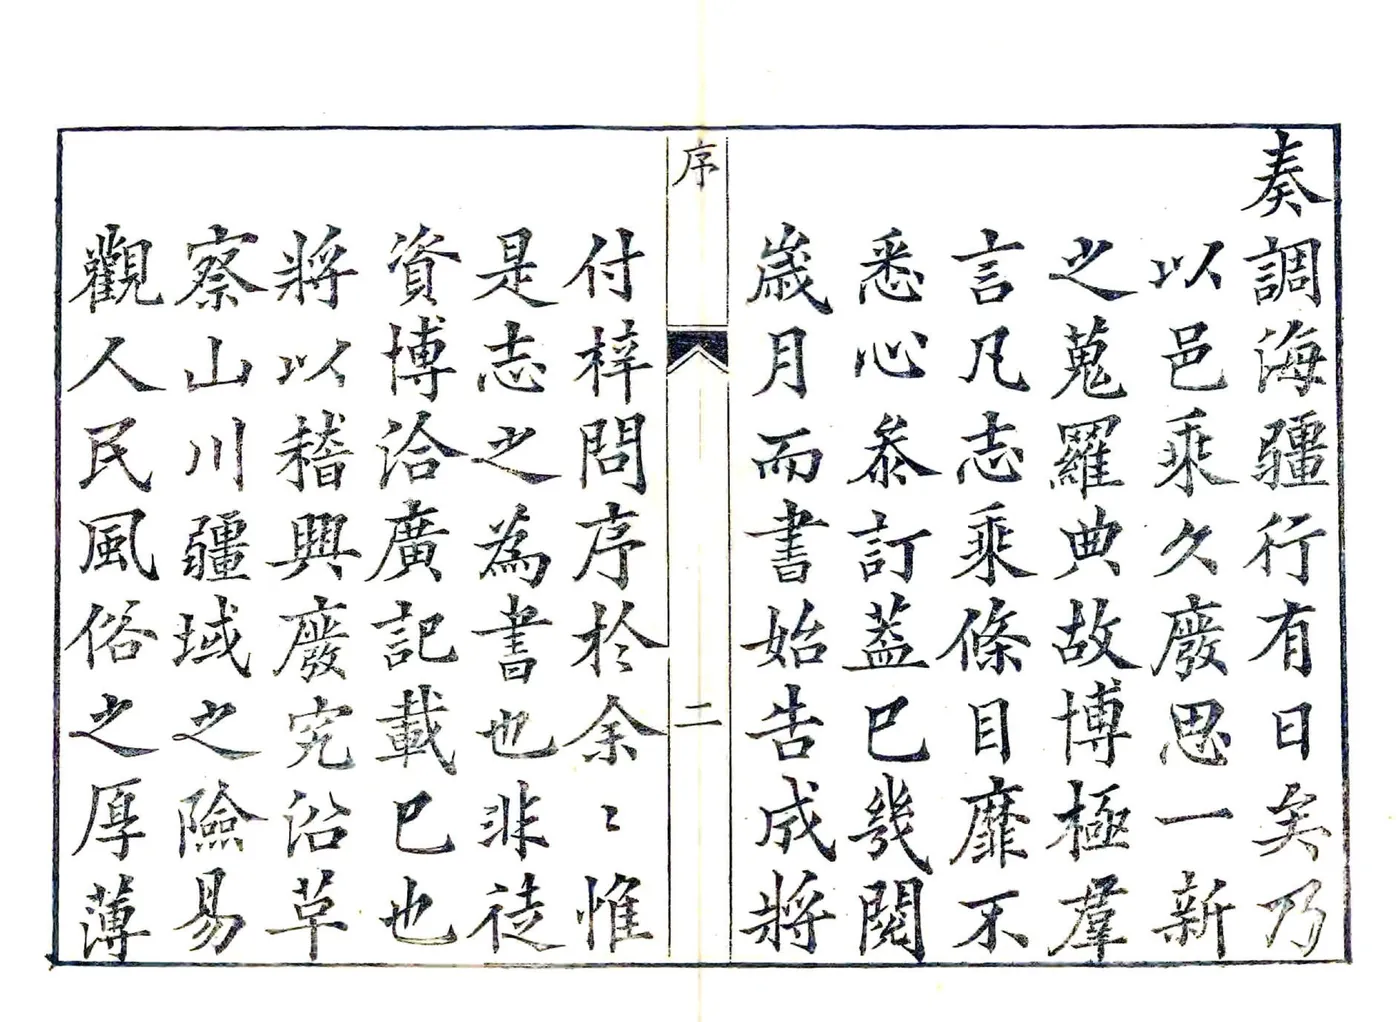 奏調海疆行有日矣乃
以邑乘久廢思一新
之蒐羅典故博極羣
言凡志乘條目靡不
悉心叅訂蓋已幾閱
歲月而書始告成將
序
二
付梓問序於余〻惟
是志之為書也非徒
資博洽廣記載已也
將以稽興廢究沿革
察山川疆域之險易
觀人民風俗之厚薄